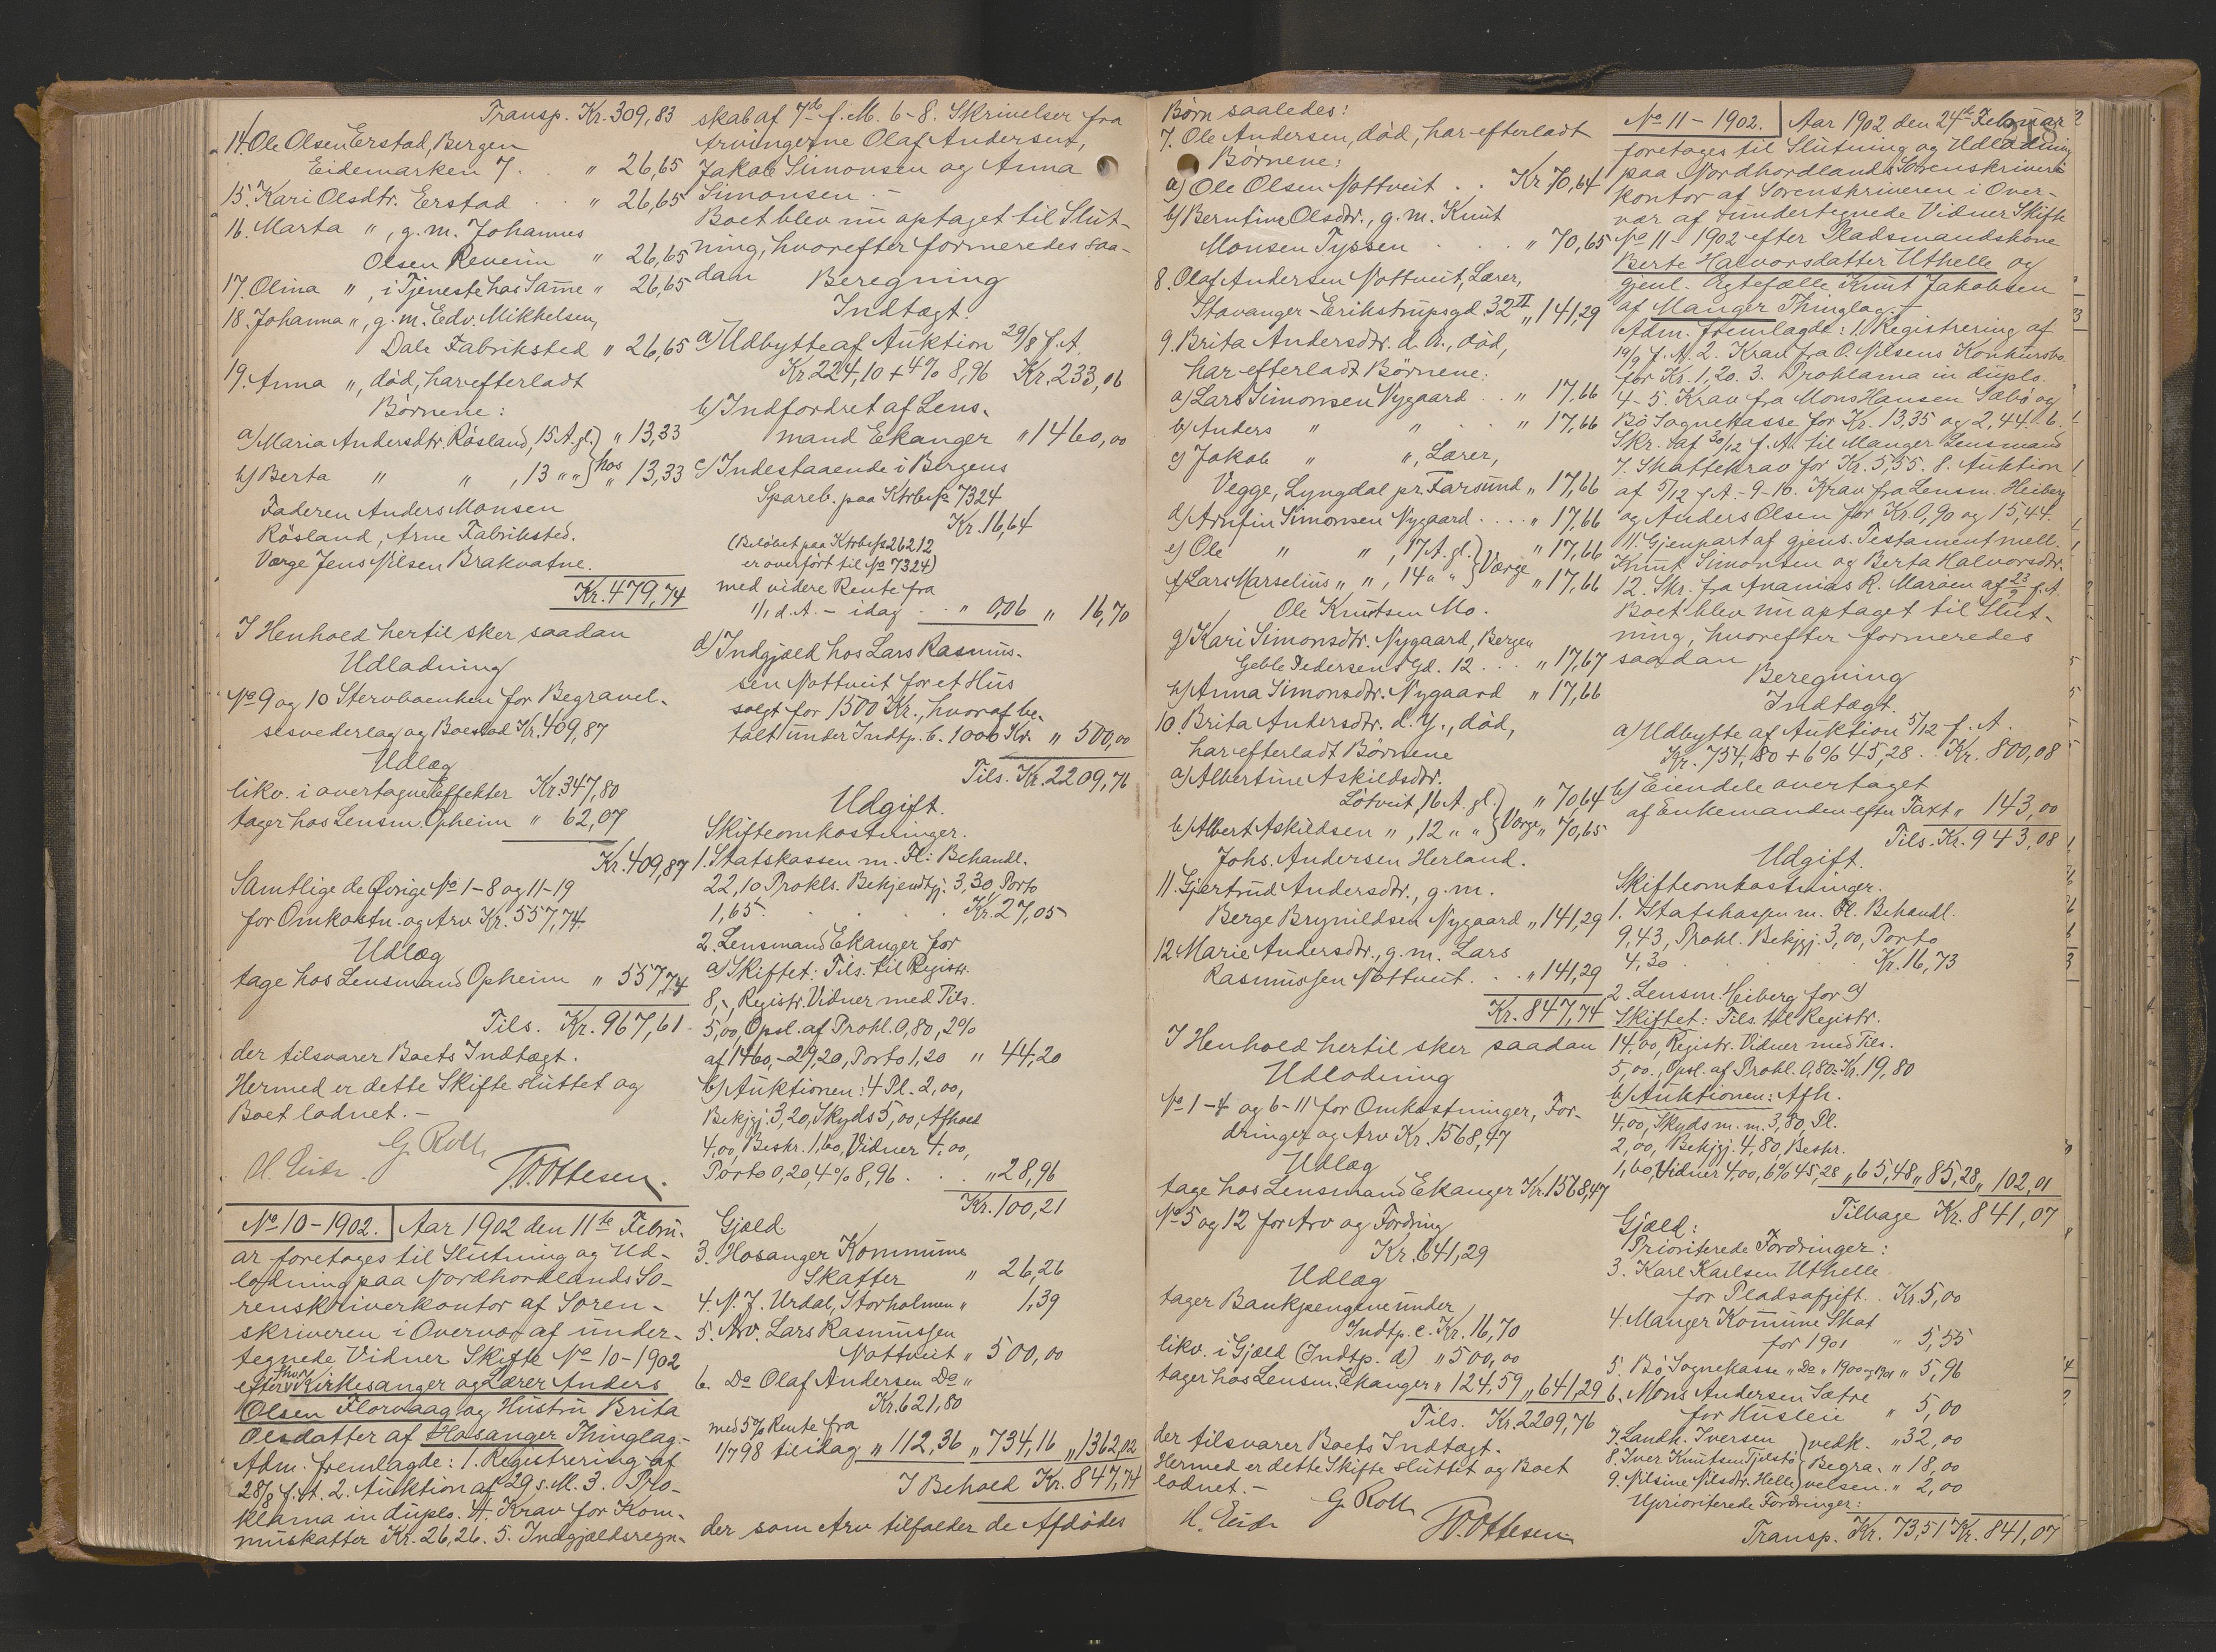 Transp. Kr. 309,83
14. Ole Olsen Erstad, Bergen
Eidemarken 7. . " 26,65
15. Kari Olsdtr. Erstad . . " 26,65
16. Marta ", g. m. Johannes
Olsen Reverin " 26,65
17. Olina ", i Tjeneste hos Samme " 26,65
18. Johanna ", g. m. Edv. Mikkelsen,
Dale Fabriksted " 26,65
19. Anna ", död, har efterladt
Börnene:
a) Maria Andersdtr. Rösland, 15 A. gl. } " 13,33
b) Berta " " , 13 " " } hos " 13,33
Faderen Anders Monsen
Rösland, Arne Fabriksted.
Værge Jens Nilsen Brakvatne.
Kr. 479,74
I Henhold hertil sker saadan
Udlodning
No 9 og 10 Stervboenken for Begravel-
sesvederlag og Boeslod Kr. 409,87
Udlæg
likv. i overtagne Effekter Kr. 347,80
tager hos Lensm. Opheim " 62,07
Kr. 409,87
Samtlige de Övrige No 1-8 og 11-19
for Omkostn. og Arv Kr. 557,74.
Udlæg
tage hos Lensmand Opheim " 557,74
Tils. Kr. 967,61
der tilsvarer Boets Indtægt.
Hermed er dette Skifte sluttet og
Boet lodnet. –
G. Roll
W. Ottesen.
No 10 – 1902. Aar 1902 den 11te Febru-
ar foretoges til Slutning og Ud-
lodning paa Nordhordlands So-
renskriverkontor af Soren-
skriveren i Overvær af under-
tegnede Vidner Skifte No 10-1902
efter Kirkesanger og Lærer Anders
Olsen Florvaag og Hustru Brita
Olesdatter af Hosanger Thinglag. –
Adm. fremlagde: 1. Registrering af
28/8 f. A. 2. Auktion af 29 s. M. 3. Pro-
klama in duplo. 4. Krav for Kom-
muskatter Kr. 26,26. 5. Indgjældsregn-
skab af 7de f. M. 6-8. Skrivelser fra
Arvingerne Olaf Andersen,
Jakob Simonsen og Anna
Simonsen –
Boet blev nu optaget til Slut-
ning, hvorefter formeredes saa-
dan Beregning
Indtægt.
a) Udbytte af Auktion 29/8 f. A.
Kr. 224,10 + 4% 8,96 Kr. 233,06
b) Indfordret af Lens-
mand Ekanger " 1460,00
c) Indestaaende i Bergens
Spareb. paa Ktrbo/s 7324
Kr. 16,64
(Belöbet paa Ktrbo/s 26212
er overfört til No 7324)
med videre Rente fra
1/1 d. A. – idag . . " 0,06 " 16,70
d) Indgjæld hos Lars Rasmus-
sen Nottveit for et Hus
solgt for 1500 Kr., hvoraf be-
talt under Indtp. b. 1000 Kr. " 500,00
Tils. Kr. 2209,76
Udgift.
Skifteomkostninger.
1. Statskassen m. Fl: Behandl.
22,10 Prokl. Bekjendtgj. 3,30, Porto
1,65. . . . . Kr. 27,05
2. Lensmand Ekanger for
a) Skiftet: Tils. til Registr.
8,-, Registr. Vidner med Tils.
5,00, Opsl. af Prokl. 0,80, 2%
af 1460,- 29,20, Porto 1,20 " 44,20
b) Auktionen: 4 Pl. 2,00,
Bekjgj. 3,20, Skyds 5,00, Afhold
4,00, Beskr. 1,60, Vidner 4,00,
Porto 0,20, 4% 8,96 . . . " 28,96
Kr. 100,21
Gjæld.
3. Hosanger Kommune
Skatter " 26,26
4. N. J. Urdal, Storholmen " 1,39
5. Arv. Lars Rasmussen
Nottveit " 500,00
6. Do Olaf Andersen Do "
Kr. 621,80
med 5% Rente fra
1/7 98 til idag " 112,36 " 734,16 " 1362,02
I Behold Kr. 847,74
der som Arv tilfalder de Afdödes
Börn saaledes:
7. Ole Andersen, död, har efterladt
Börnene:
a) Ole Olsen Nottveit . . Kr 70,64
b) Berntine Olsdtr., g. m. Knut
Monsen Tyssen . . . " 70,65
8. Olaf Andersen Nottveit, Lærer,
Stavanger – Erikstrupsgd. 32 II " 141,29
9. Brita Andersdtr. d. Æ., död,
har efterladt Börnene:
a) Lars Simonsen Nygaard . . " 17,66
b) Anders " " . . " 17,66
c) Jakob " ", Lærer,
Vegge, Lyngdal pr. Farsund " 17,66
d) Arnfin Simonsen Nygaard . . . " 17,66
e) Ole " ", 17 A. gl. } " 17,66
f) Lars Marselius " ", 14 " " } Værge " 17,66
Ole Knutsen Mo.
g) Kari Simonsdtr. Nygaard, Bergen
Geble Pedersens Gd. 12 . . . " 17,67
h) Anna Simonsdtr. Nygaard " 17,66
10. Brita Andersdtr. d. Y., död,
har efterladt Börnene
a) Albertine Askildsdtr.
Lötveit, 16 A. gl. } " 70,64
b) Albert Askildsen ", 12 " " } Værge " 70,65
Johs. Andersen Herland.
11. Gjertrud Andersdtr., g. m.
Berge Brynildsen Nygaard " 141,29
12. Marie Andersdtr., g. m. Lars
Rasmussen Nottveit . . " 141,29
Kr. 847,74
I Henhold hertil sker saadan
Udlodning
No 1-4 og 6-11 for Omkostninger, For-
dringer og Arv Kr. 1568,47
Udlæg
tage hos Lensmand Ekanger Kr. 1568,47
No 5 og 12 for Arv og Fordring
Kr. 641,29
Udlæg
tager Bankpengene under
Indtp. c. Kr. 16,70
likv. i Gjæld (Indtp. d) " 500,00
tager hos Lensm. Ekanger " 124,59 " 641,29
Tils. Kr. 2209,76
der tilsvarer Boets Indtægt.
Hermed er dette Skifte sluttet og Boet
lodnet. –
G. Roll
W. Ottesen
No 11 – 1902. Aar 1902 den 24de Februar
foretoges til Slutning og Udlodning
paa Nordhordlands Sorenskriver-
kontor af Sorenskriveren i Over-
vær af undertegnede Vidner Skifte
No 11 – 1902 efter Pladsmandskone
Berte Halvorsdatter Uthelle og
gjenl. Ægtefælle Knut Jakobsen
af Manger Thinglag. –
Adm. fremlagde: 1. Registrering af
19/9 f. A. 2. Krav fra O. Nilsens Konkursbo
for Kr. 1,20. 3. Proklama in duplo.
4-5. Krav fra Mons Hansen Sæbö og
Bö Sognekasse for Kr. 13,35 og 2,44. 6.
Skr. af 30/12 f. A. til Manger Lensmand
7. Skattekrav for Kr. 5,55. 8. Auktion
af 5/12 f. A. – 9-10. Krav fra Lensm. Heiberg
og Anders Olsen for Kr. 0,90 og 15,44.
11. Gjenpart af gjens. Testament mell.
Knut Simonsen og Berta Halvorsdtr.
12. Skr. fra Ananias R. Maröen af 23/9 f. A.
Boet blev nu optaget til Slut-
ning, hvorefter formeredes
saadan Beregning
Indtægt.
a) Udbytte af Auktion 5/12 f. A.
Kr. 754,80 + 6% 45,28 . . Kr. 800,08
b) Eiendele overtaget
af Enkemanden efter Taxt " 143,00
Tils. Kr. 943,08
Udgift.
Skifteomkostninger.
1. Statskassen m. Fl. Behandl.
9,43, Prokl. Bekjgj. 3,00, Porto
4,30 . . . Kr. 16,73
2. Lensm. Heiberg for a)
Skiftet: Tils. til Registr.
14,00, Registr. Vidner med Tils.
5,00, Opsl. af Prokl. 0,80 = Kr. 19,80
b) Auktionen: Afh.
4,00, Skyds m. m. 3,80, Pl.
2,00, Bekjgj. 4,80, Beskr.
1,60, Vidner 4,00, 6% 45,28 " 65,48 " 85,28 " 102,01
Tilbage Kr. 841,07
Gjæld:
Prioriterede Fordringer:
3. Karl Karlsen Uthelle
for Pladsafgift . . Kr. 5,00
4. Manger Komune Skat
for 1901 " 5,55
5. Bö Sognekasse " Do " 1900 og 1901 " 5,96
6. Mons Andersen Sætre
for Husleie " 5,00
7. Landh. Iversen } vedk. " 32,00
8. Iver Knutsen Tjelstö } Begra- " 18,00
9. Nilsine Nilsdtr. Helle } velsen. " 2,00
Uprioriterede Fordringer:
Transp. Kr. 73,51 Kr. 841,07